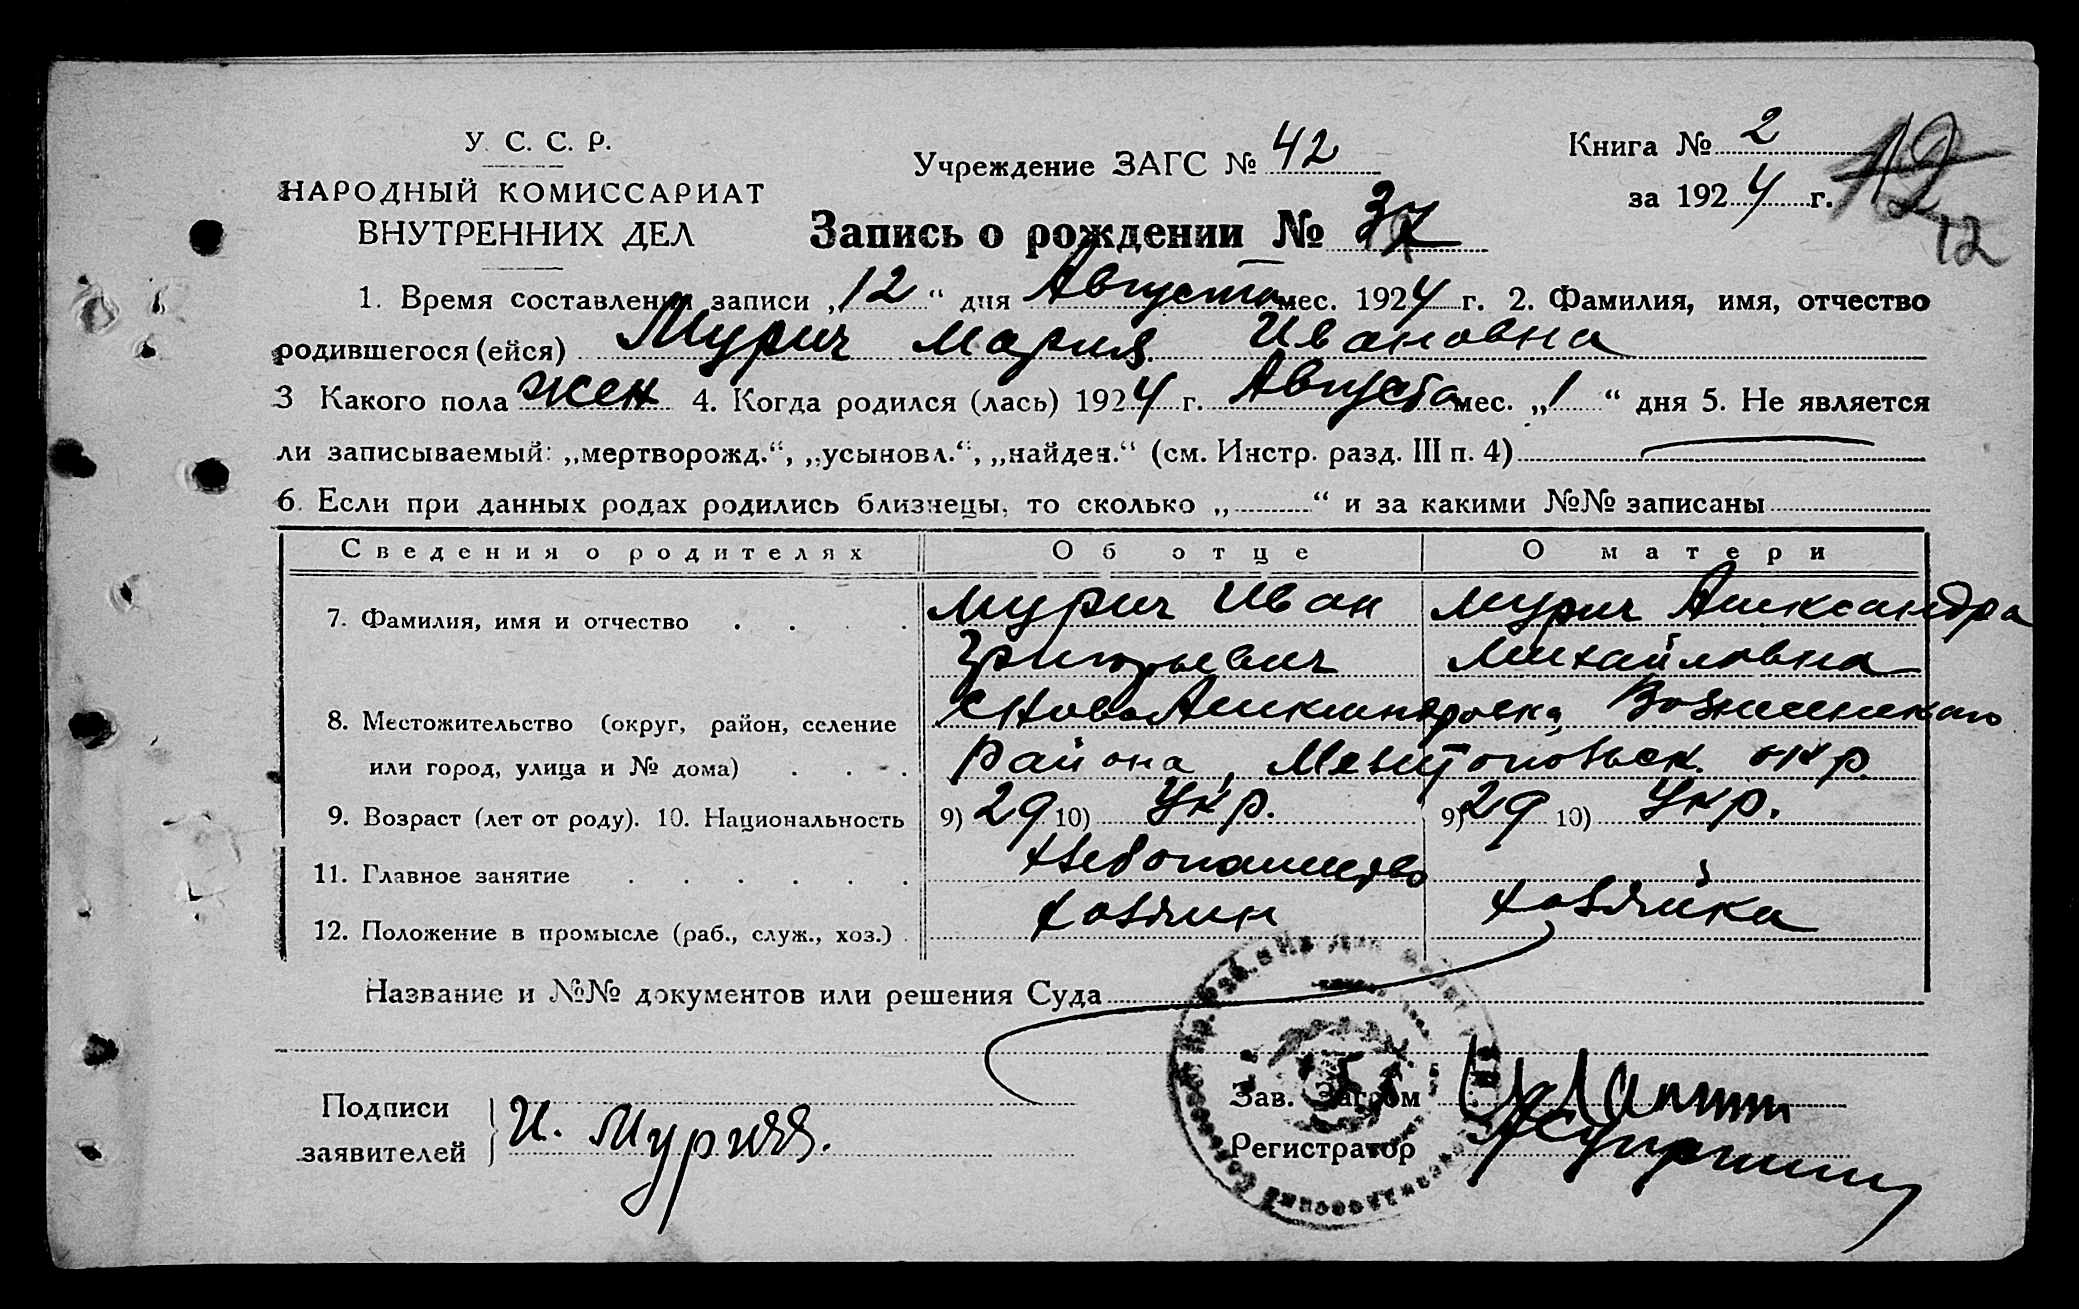 У. С. С. Р.
НАРОДНЫЙ КОМИССАРИАТ
ВНУТРЕННИХ ДЕЛ
Учреждение ЗАГС № 42
Книга № 2
за 1924 г.
12
12
Запись о рождении № 37
1. Время составления записи „12“ дня Августа мес. 1924 г. 2. Фамилия, имя, отчество
родившегося (ейся) Мурич Мария Ивановна
3 Какого пола жен 4. Когда родился (лась) 1924 г. Августа мес. „1“ дня 5. Не является
ли записываемый: „мертворожд.“, „усыновл.“, „найден.“ (см. Инстр. разд. III п. 4)
6. Если при данных родах родились близнецы, то сколько „ “ и за какими №№ записаны
Сведения о родителях Об отце О матери
7. Фамилия, имя и отчество Мурич Иван Мурич Александра
Григорьевич Михайловна
8. Местожительство (округ, район, селение с Ново Александровка,
или город, улица и № дома) района, Мелитопольск. окр.
9. Возраст (лет от роду). 10. Национальность 9) 29 10) Укр. 9) 29 10) Укр.
11. Главное занятие Хлебопашество
12. Положение в промысле (раб., служ., хоз.) хозяин хозяйка
Название и №№ документов или решения Суда
Подписи
заявителей И. Мурич
Зав. Загсом
Регистратор